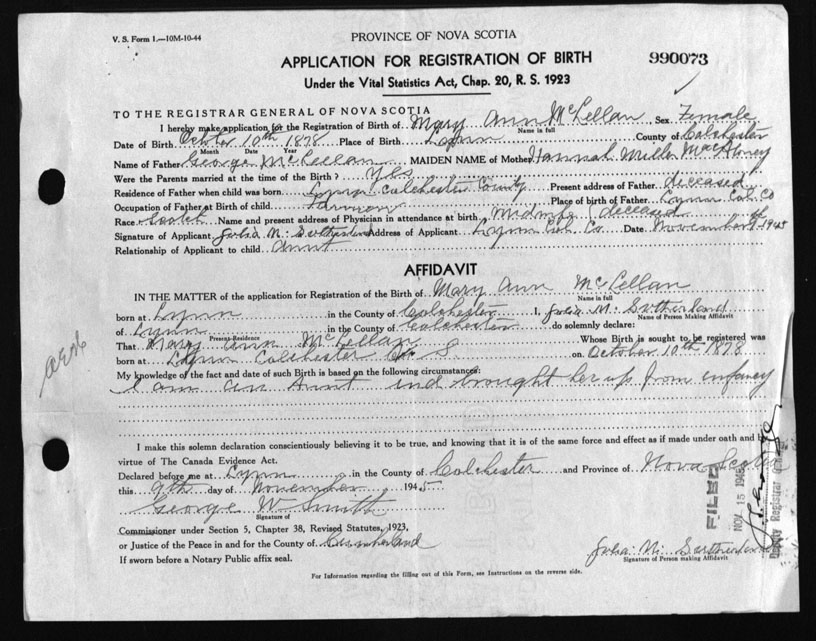 V. S. Form 1.—10M-10-44
PROVINCE OF NOVA SCOTIA
APPLICATION FOR REGISTRATION OF BIRTH
990073
Under the Vital Statistics Act, Chap. 20, R. S. 1923
TO THE REGISTRAR GENERAL OF NOVA SCOTIA
I hereby make application for the Registration of Birth of Mary Ann McLellan, Sex Female
Name in full
Date of Birth October 10th 1878 Place of Birth Lynn County of Colchester
Month Date Year
Name of Father George McLellan MAIDEN NAME of Mother Hannah
Were the Parents married at the time of the Birth? Yes
Residence of Father when child was born Lynn Colchester County Present address of Father deceased
Occupation of Father at Birth of child Place of birth of Father Lynn Col. Co
Race Scotch Name and present address of Physician in attendance at birth Midwife (deceased
Signature of Applicant Julia M. Sutherland Address of Applicant Lynn Col. Co. Date November 1945
Relationship of Applicant to child Aunt
AFFIDAVIT
IN THE MATTER of the application for Registration of the Birth of Mary Ann McLellan
Name in full
born at Lynn in the County of Colchester I, Julia M. Sutherland
Name of Person Making Affidavit
of Lynn in the County of Colchester do solemnly declare:
Present-Residence
That Mary Ann McLellan Whose Birth is sought to be registered was
born at Lynn Colchester on October 10th 1878
My knowledge of the fact and date of such Birth is based on the following circumstances:
I am an Aunt and brought her up from infancy
I make this solemn declaration conscientiously believing it to be true, and knowing that it is of the same force and effect as if made under oath and by
virtue of The Canada Evidence Act.
Declared before me at Lynn in the County of Colchester and Province of Nova Scotia
this 9th day of November 1945
George W Smith
Signature of
Commissioner under Section 5, Chapter 38, Revised Statutes, 1923,
or Justice of the Peace in and for the County of Cumberland
If sworn before a Notary Public affix seal.
Julia M. Sutherland
Signature of Person making Affidavit
For Information regarding the filling out of this Form, see Instructions on the reverse side.
FILED
NOV 15 1945
Deputy Registrar